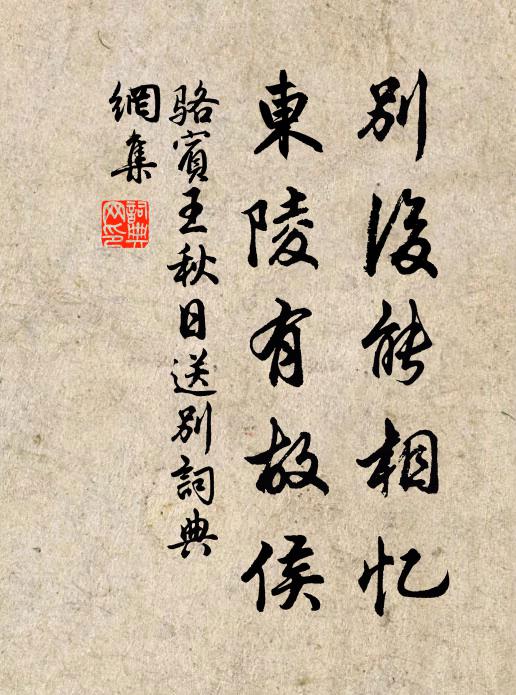 別後能相忆
東陵有故侯
駱賓王秋日送別詞典
網集
詞典
网印